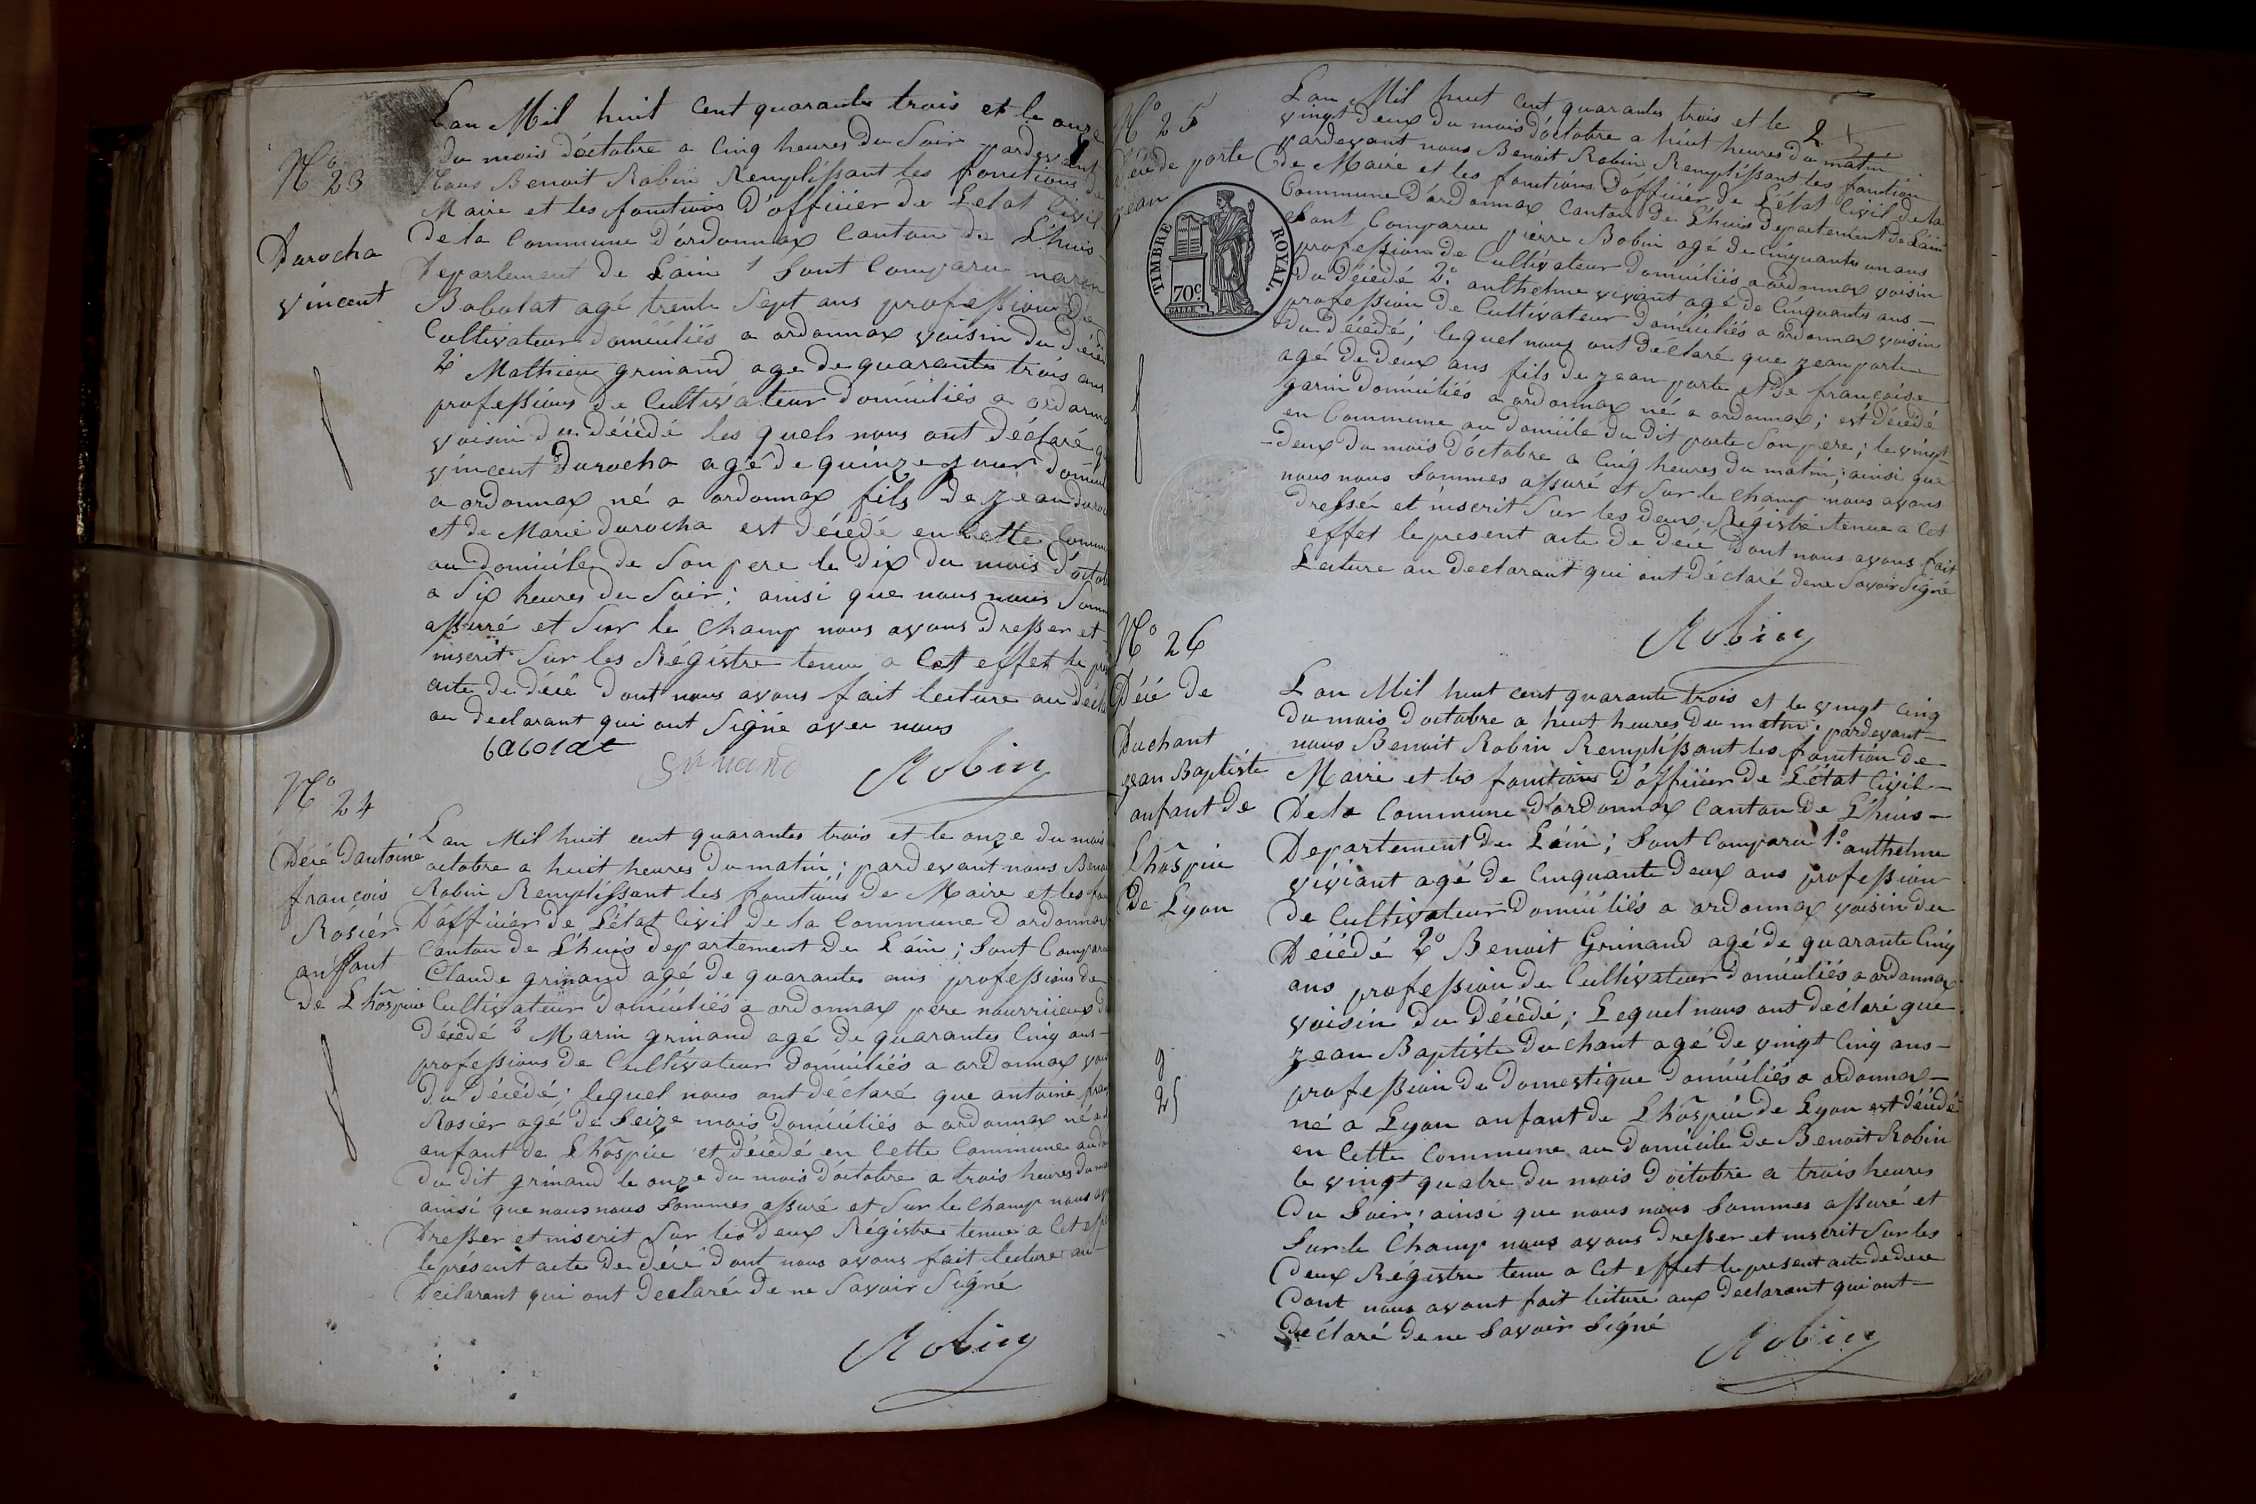 N° 23
Durocha
vincent
Lan Mil huit Cent quarante trois et le onze
du mois d'octobre a Cinq heures du Soir pardevant
Nous Benoit Robin Remplissant les fonctions de
Maire et les fonctions D'officier de Letat Civil
de la Commune d'ordonnax Canton de L'huis
Departement de Lain 1 Sont Comparu marin
Babolat agé trente Sept ans profession De
Cultivateur domiciliés a ordonnax voisin du décédé
2° Mathieu grinand age de quarante trois ans
professions de Cultivateur domiciliés a ordonna
voisin du décédé les quels nous ont déclaré q
vincent Durocha agé de quinze jour domicil
a ordonnax né a ordonnax fils de jean duroc
et de Marie durocha est décédé en Cette Comm
au domicile de Son pere le Dix du mois d'octob
a Six heures du Soir ; ainsi que nous nous Somm
assuré et Sur le Champ nous avons Dresser et
inscrit Sur les Régistre tenue a Cet effet le pré
acte de décé dont nous avons fait lecture au décla
au declarant qui ont Signé avec nous
babolat grinand Robin
N° 24
Décé Dantoine
françois
Rosier
anffant
de Lhospice
Lan Mil huit cent quarantes trois et le onze du mois
octobre a huit heures du matin ; pardevant nous Benoi
Robin Remplissant les fonctions de Maire et les fon
D'officier de L'état Civil de la Commune D'ordonnax
Canton de L'huis departement de Lain ; Sont Compara
Claude grinand agé de quarantes ans professions de
Cultivateur domiciliés a ordonnax pere nourricieux d
décédé 2 Marin grinand agé de quarantes Cinq ans -
professions de Cultivateur domiciliés a ordonnax vois
du décédé ; lequel nous ont déclaré que antoine fran
Rosier agé de Seize mois Domiciliés a ordonnax né a
anfant de Lhospice et décédé en Cette Commune au do
du dit grinand le onze du mois d'octobre a trois heures du ma
ainsi que nous nous Sommes assuré et Sur le Champ nous av
Dresser et inscrit Sur les deux Régistre tenue a Cet eff
le présent acte De décé dont nous avons fait lecture au -
Déclarant qui ont déclaré De ne Savoir Signé
Robin
N° 25
Décé de porte
jean
TIMBRE ROYAL.
70c
Lan Mil huit Cent quarantes trois et le
vingt deux du mois d'octobre a huit heures du matin
pardevant nous Benoit Robin Remplissant les fonction
de Maire et les fonctions D'officier de L'état Civil de la
Commune D'ordonnax Canton de L'huis departement de Lain
Sont Comparue pierre Bobin agé de Cinquante un ans
profession de Cultivateur Domiciliés a ordonnax voisin
du décédé 2° anthelme viviant agé de Cinquante ans -
profession de Cultivateur domiciliés a ordonnax voisin
du décédé ; lequel nous ont déclaré que jean porte
agé de Deux ans fils de jean porte et de françoise
garin domiciliés a ordonnax né a ordonnax ; est décédé
en Commune au domicile du Dit porte Son pere ; le vingt
- deux du mois d'octobre a Cinq heures du matin ; ainsi que
nous nous Sommes assuré et Sur le Champ nous avons
dresser et inscrit Sur les Deux Régistre tenue a Cet
effet le present acte de décé Dont nous avons fait
Lecture au Declarant qui ont déclaré de ne Savoir Signé
Robin
N° 26
Décé de
Duchant
jean Baptiste
anfant de
Lhospice
De Lyon
Lan Mil huit cent quarante trois et le vingt Cinq
du mois d'octobre a huit heures du matin ; pardevant -
nous Benoit Robin Remplissant les fonction de -
Maire et les fonctions D'officier de L'état Civil -
De la Commune D'ordonnax Canton de L'huis -
Departement de Lain ; Sont Comparu 1° anthelme
viviant agé de Cinquante Deux ans profession
de Cultivateur Domiciliés a ordonnax voisin du
Décédé 2° Benoit Grinand agé de quarante Cinq
ans profession de Cultivateur Domiciliés a ordonnax
voisin du Décédé ; Lequel nous ont déclaré que
jean Baptiste Duchant agé de vingt Cinq ans -
profession de Domestique Domiciliés a ordonnax -
né a Lyon anfant de Lhospice de Lyon est décédé
en Cette Commune au Domicile De Benoit Robin
le vingt quatre du mois D'octobre a trois heures
du Soir ; ainsi que nous nous Sommes assuré et
Sur le Champ nous avons Dresser et inscrit Sur les
Deux Régistre tenu a Cet effet le present acte de dece
Dont nous avont fait lecture aux declarant qui ont -
Déclaré de ne Savoir Signé
Robin